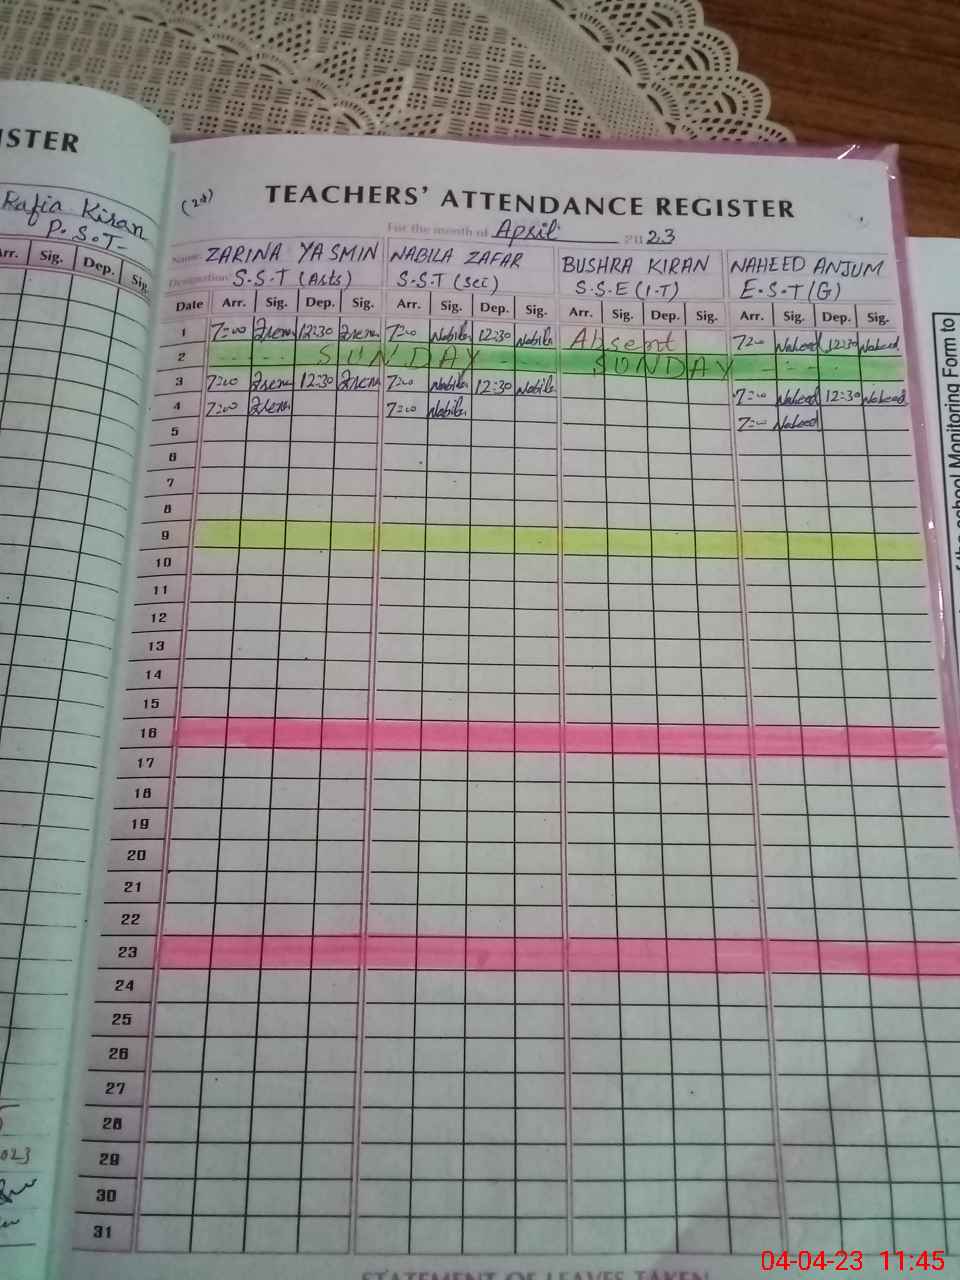 ISTER
Rafia Kiran
P.S.T-
Arr. Sig. Dep. Sig.
(24)
TEACHERS' ATTENDANCE REGISTER
For the month of April 2023
Name ZARINA YASMIN NABILA ZAFAR BUSHRA KIRAN NAHEED ANJUM
Designation S.S.T (Arts) S.S.T (Sci) S.S.E (I.T) E.S.T (G)
Date Arr. Sig. Dep. Sig. Arr. Sig. Dep. Sig. Arr. Sig. Dep. Sig. Arr. Sig. Dep. Sig.
1 7=00 12=30 7=00 Nabila 12=30 Nabila Absent 7=00 Naheed 12=30 Naheed
2 SUNDAY SUNDAY
3 7=00 12=30 7=00 Nabila 12=30 Nabila 7=00 Naheed 12=30 Naheed
4 7=00 7=00 Nabila 7=00 Naheed
5
6
7
8
9
10
11
12
13
14
15
16
17
18
19
20
21
22
23
24
25
26
27
28
29
30
31
STATEMENT OF LEAVES TAKEN
023
of the school Monitoring Form to
04-04-23 11:45